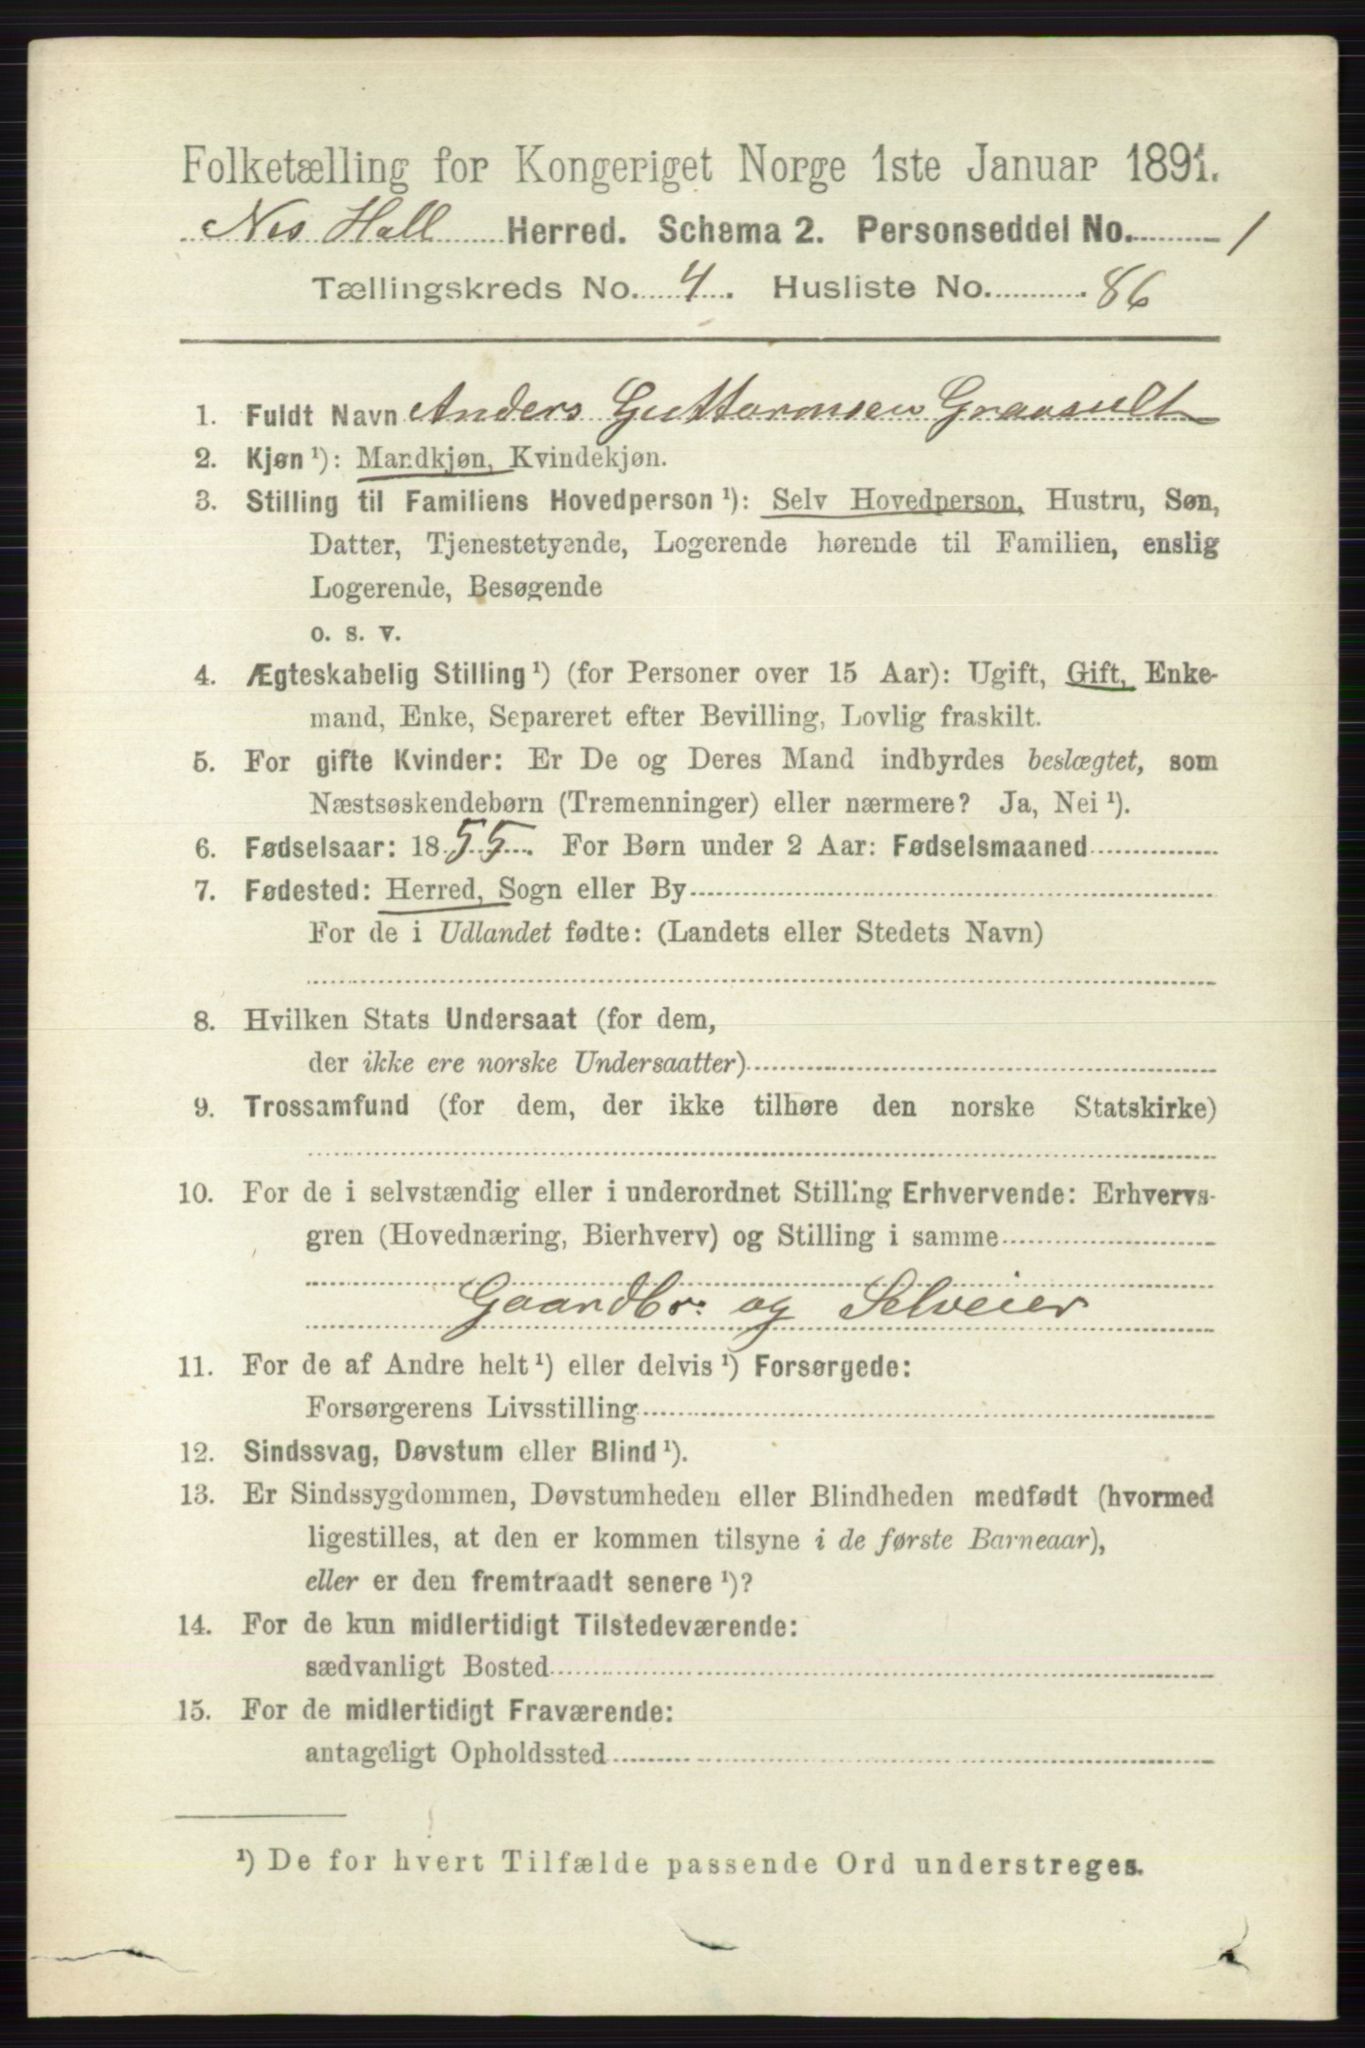 Folketælling for Kongeriget Norge 1ste Januar 1891.
Nes Hall Herred. Schema 2. Personseddel No. 1
Tællingskreds No. 4. Husliste No. 86
1. Fuldt Navn Anders Guttormsen Graasult
2. Kjøn ¹): Mandkjøn, Kvindekjøn.
3. Stilling til Familiens Hovedperson ¹): Selv Hovedperson, Hustru, Søn,
Datter, Tjenestetyende, Logerende hørende til Familien, enslig
Logerende, Besøgende
o. s. v.
4. Ægteskabelig Stilling ¹) (for Personer over 15 Aar): Ugift, Gift, Enke-
mand, Enke, Separeret efter Bevilling, Lovlig fraskilt.
5. For gifte Kvinder: Er De og Deres Mand indbyrdes beslægtet, som
Næstsøskendebørn (Tremenninger) eller nærmere? Ja, Nei ¹).
6. Fødselsaar: 1855. For Børn under 2 Aar: Fødselsmaaned
7. Fødested: Herred, Sogn eller By
For de i Udlandet fødte: (Landets eller Stedets Navn)
8. Hvilken Stats Undersaat (for dem,
der ikke ere norske Undersaatter)
9. Trossamfund (for dem, der ikke tilhøre den norske Statskirke)
10. For de i selvstændig eller i underordnet Stilling Erhvervende: Erhvervs-
gren (Hovednæring, Bierhverv) og Stilling i samme
Gaardbr. og Selveier
11. For de af Andre helt ¹) eller delvis ¹) Forsørgede:
Forsørgerens Livsstilling
12. Sindssvag, Døvstum eller Blind ¹).
13. Er Sindssygdommen, Døvstumheden eller Blindheden medfødt (hvormed
ligestilles, at den er kommen tilsyne i de første Barneaar),
eller er den fremtraadt senere ¹)?
14. For de kun midlertidigt Tilstedeværende:
sædvanligt Bosted
15. For de midlertidigt Fraværende:
antageligt Opholdssted
¹) De for hvert Tilfælde passende Ord understreges.